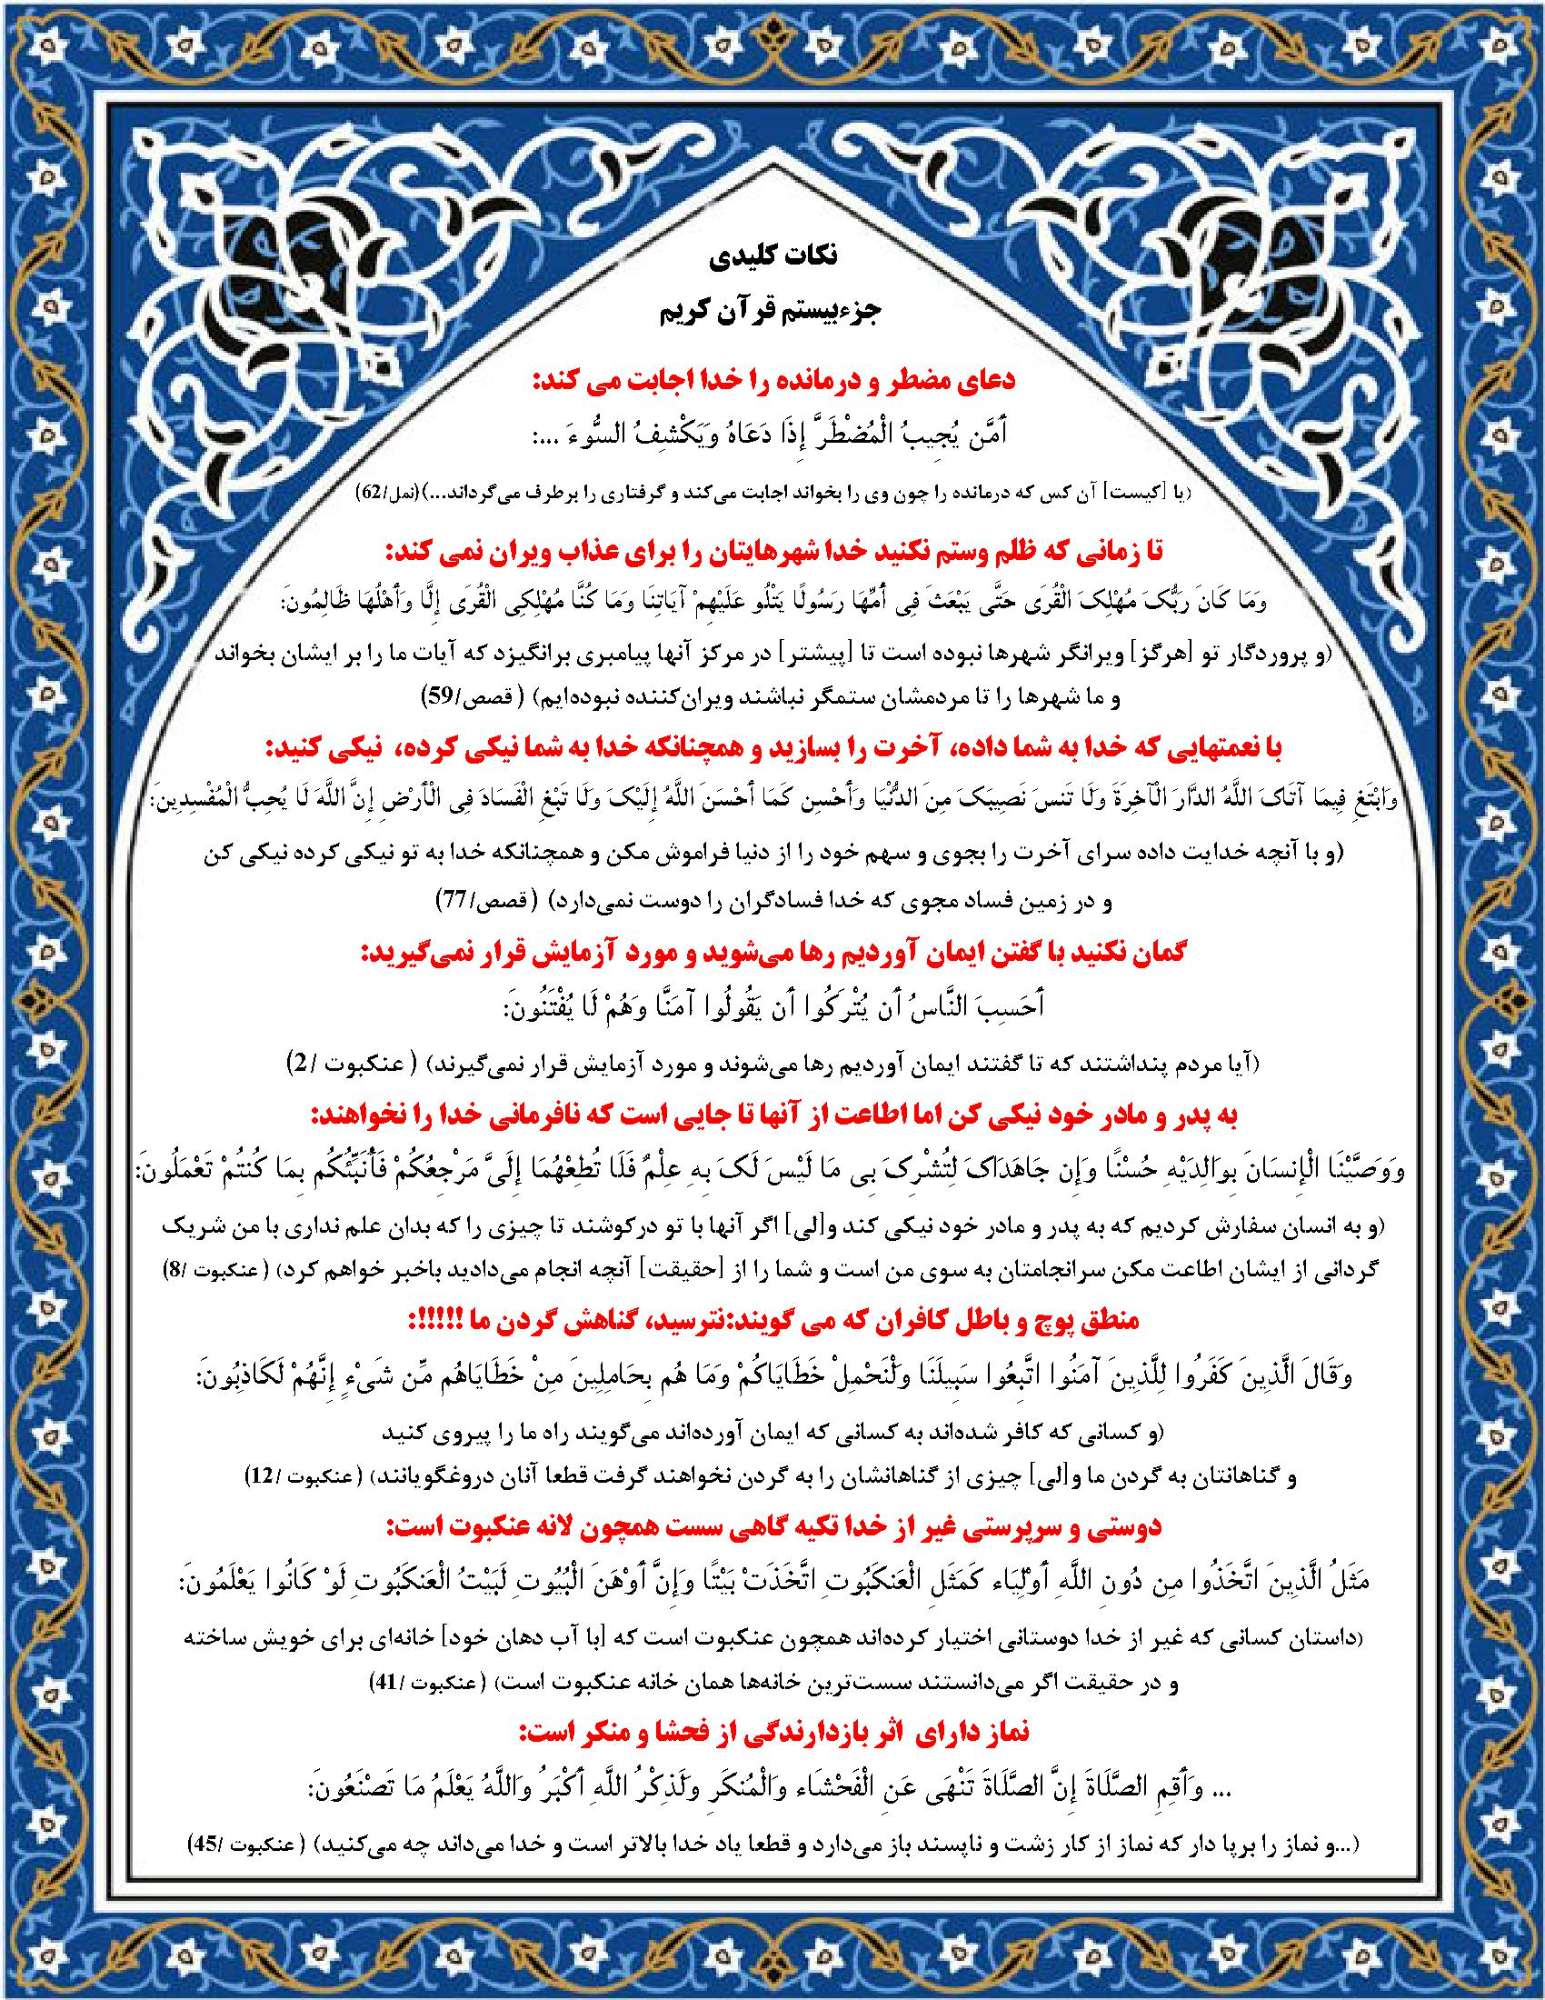 نکات کلیدی
جزءبیستم قرآن کریم
دعای مضطر و درمانده را خدا اجابت می کند:
أَمَّن يُجِيبُ الْمُضْطَرَّ إِذَا دَعَاهُ وَيَكْشِفُ السُّوءَ ...:
(یا [کیست] آن کس که درمانده را چون وی را بخواند اجابت می‌کند و گرفتاری را برطرف می‌گرداند...)(نمل/62)
تا زمانی که ظلم وستم نکنید خدا شهرهایتان را برای عذاب ویران نمی کند:
وَمَا كَانَ رَبُّكَ مُهْلِكَ الْقُرَى حَتَّى يَبْعَثَ فِي أُمِّهَا رَسُولًا يَتْلُو عَلَيْهِمْ آيَاتِنَا وَمَا كُنَّا مُهْلِكِي الْقُرَى إِلَّا وَأَهْلُهَا ظَالِمُونَ:
(و پروردگار تو [هرگز] ویرانگر شهرها نبوده است تا [پیشتر] در مرکز آنها پیامبری برانگیزد که آیات ما را بر ایشان بخواند
و ما شهرها را تا مردمشان ستمگر نباشند ویران‌کننده نبوده‌ایم) ( قصص/59)
با نعمتهایی که خدا به شما داده، آخرت را بسازید و همچنانکه خدا به شما نیکی کرده، نیکی کنید:
وَابْتَغِ فِيمَا آتَاكَ اللَّهُ الدَّارَ الْآخِرَةَ وَلَا تَنسَ نَصِيبَكَ مِنَ الدُّنْيَا وَأَحْسِن كَمَا أَحْسَنَ اللَّهُ إِلَيْكَ وَلَا تَبْغِ الْفَسَادَ فِي الْأَرْضِ إِنَّ اللَّهَ لَا يُحِبُّ الْمُفْسِدِينَ:
(و با آنچه خدایت داده سرای آخرت را بجوی و سهم خود را از دنیا فراموش مکن و همچنانکه خدا به تو نیکی کرده نیکی کن
و در زمین فساد مجوی که خدا فسادگران را دوست نمی‌دارد) ( قصص/77)
گمان نکنید با گفتن ایمان آوردیم رها می‌شوید و مورد آزمایش قرار نمی‌گیرید:
أَحَسِبَ النَّاسُ أَن يُتْرَكُوا أَن يَقُولُوا آمَنَّا وَهُمْ لَا يُفْتَنُونَ:
(آیا مردم پنداشتند که تا گفتند ایمان آوردیم رها می‌شوند و مورد آزمایش قرار نمی‌گیرند) ( عنکبوت /2)
به پدر و مادر خود نیکی کن اما اطاعت از آنها تا جایی است که نافرمانی خدا را نخواهند:
وَوَصَّيْنَا الْإِنسَانَ بِوَالِدَيْهِ حُسْنًا وَإِن جَاهَدَاكَ لِتُشْرِكَ بِي مَا لَيْسَ لَكَ بِهِ عِلْمٌ فَلَا تُطِعْهُمَا إِلَيَّ مَرْجِعُكُمْ فَأُنَبِّئُكُم بِمَا كُنتُمْ تَعْمَلُونَ:
(و به انسان سفارش کردیم که به پدر و مادر خود نیکی کند و[لی] اگر آنها با تو درکوشند تا چیزی را که بدان علم نداری با من شریک
گردانی از ایشان اطاعت مکن سرانجامتان به سوی من است و شما را از [حقیقت] آنچه انجام می‌دادید باخبر خواهم کرد) ( عنکبوت /8)
منطق پوچ و باطل کافران که می گویند:نترسید، گناهش گردن ما !!!!!!:
وَقَالَ الَّذِينَ كَفَرُوا لِلَّذِينَ آمَنُوا اتَّبِعُوا سَبِيلَنَا وَلْنَحْمِلْ خَطَايَاكُمْ وَمَا هُم بِحَامِلِينَ مِنْ خَطَايَاهُم مِّن شَيْءٍ إِنَّهُمْ لَكَاذِبُونَ:
(و کسانی که کافر شده‌اند به کسانی که ایمان آورده‌اند می‌گویند راه ما را پیروی کنید
و گناهانتان به گردن ما و[لی] چیزی از گناهانشان را به گردن نخواهند گرفت قطعا آنان دروغگویانند) ( عنکبوت /12)
دوستی و سرپرستی غیر از خدا تکیه گاهی سست همچون لانه عنکبوت است:
مَثَلُ الَّذِينَ اتَّخَذُوا مِن دُونِ اللَّهِ أَوْلِيَاء كَمَثَلِ الْعَنكَبُوتِ اتَّخَذَتْ بَيْتًا وَإِنَّ أَوْهَنَ الْبُيُوتِ لَبَيْتُ الْعَنكَبُوتِ لَوْ كَانُوا يَعْلَمُونَ:
(داستان کسانی که غیر از خدا دوستانی اختیار کرده‌اند همچون عنکبوت است که [با آب دهان خود] خانه‌ای برای خویش ساخته
و در حقیقت اگر می‌دانستند سست‌ترین خانه‌ها همان خانه عنکبوت است) ( عنکبوت /41)
نماز دارای اثر بازدارندگی از فحشا و منکر است:
... وَأَقِمِ الصَّلَاةَ إِنَّ الصَّلَاةَ تَنْهَى عَنِ الْفَحْشَاء وَالْمُنكَرِ وَلَذِكْرُ اللَّهِ أَكْبَرُ وَاللَّهُ يَعْلَمُ مَا تَصْنَعُونَ:
(...و نماز را برپا دار که نماز از کار زشت و ناپسند باز می‌دارد و قطعا یاد خدا بالاتر است و خدا می‌داند چه می‌کنید) ( عنکبوت /45)